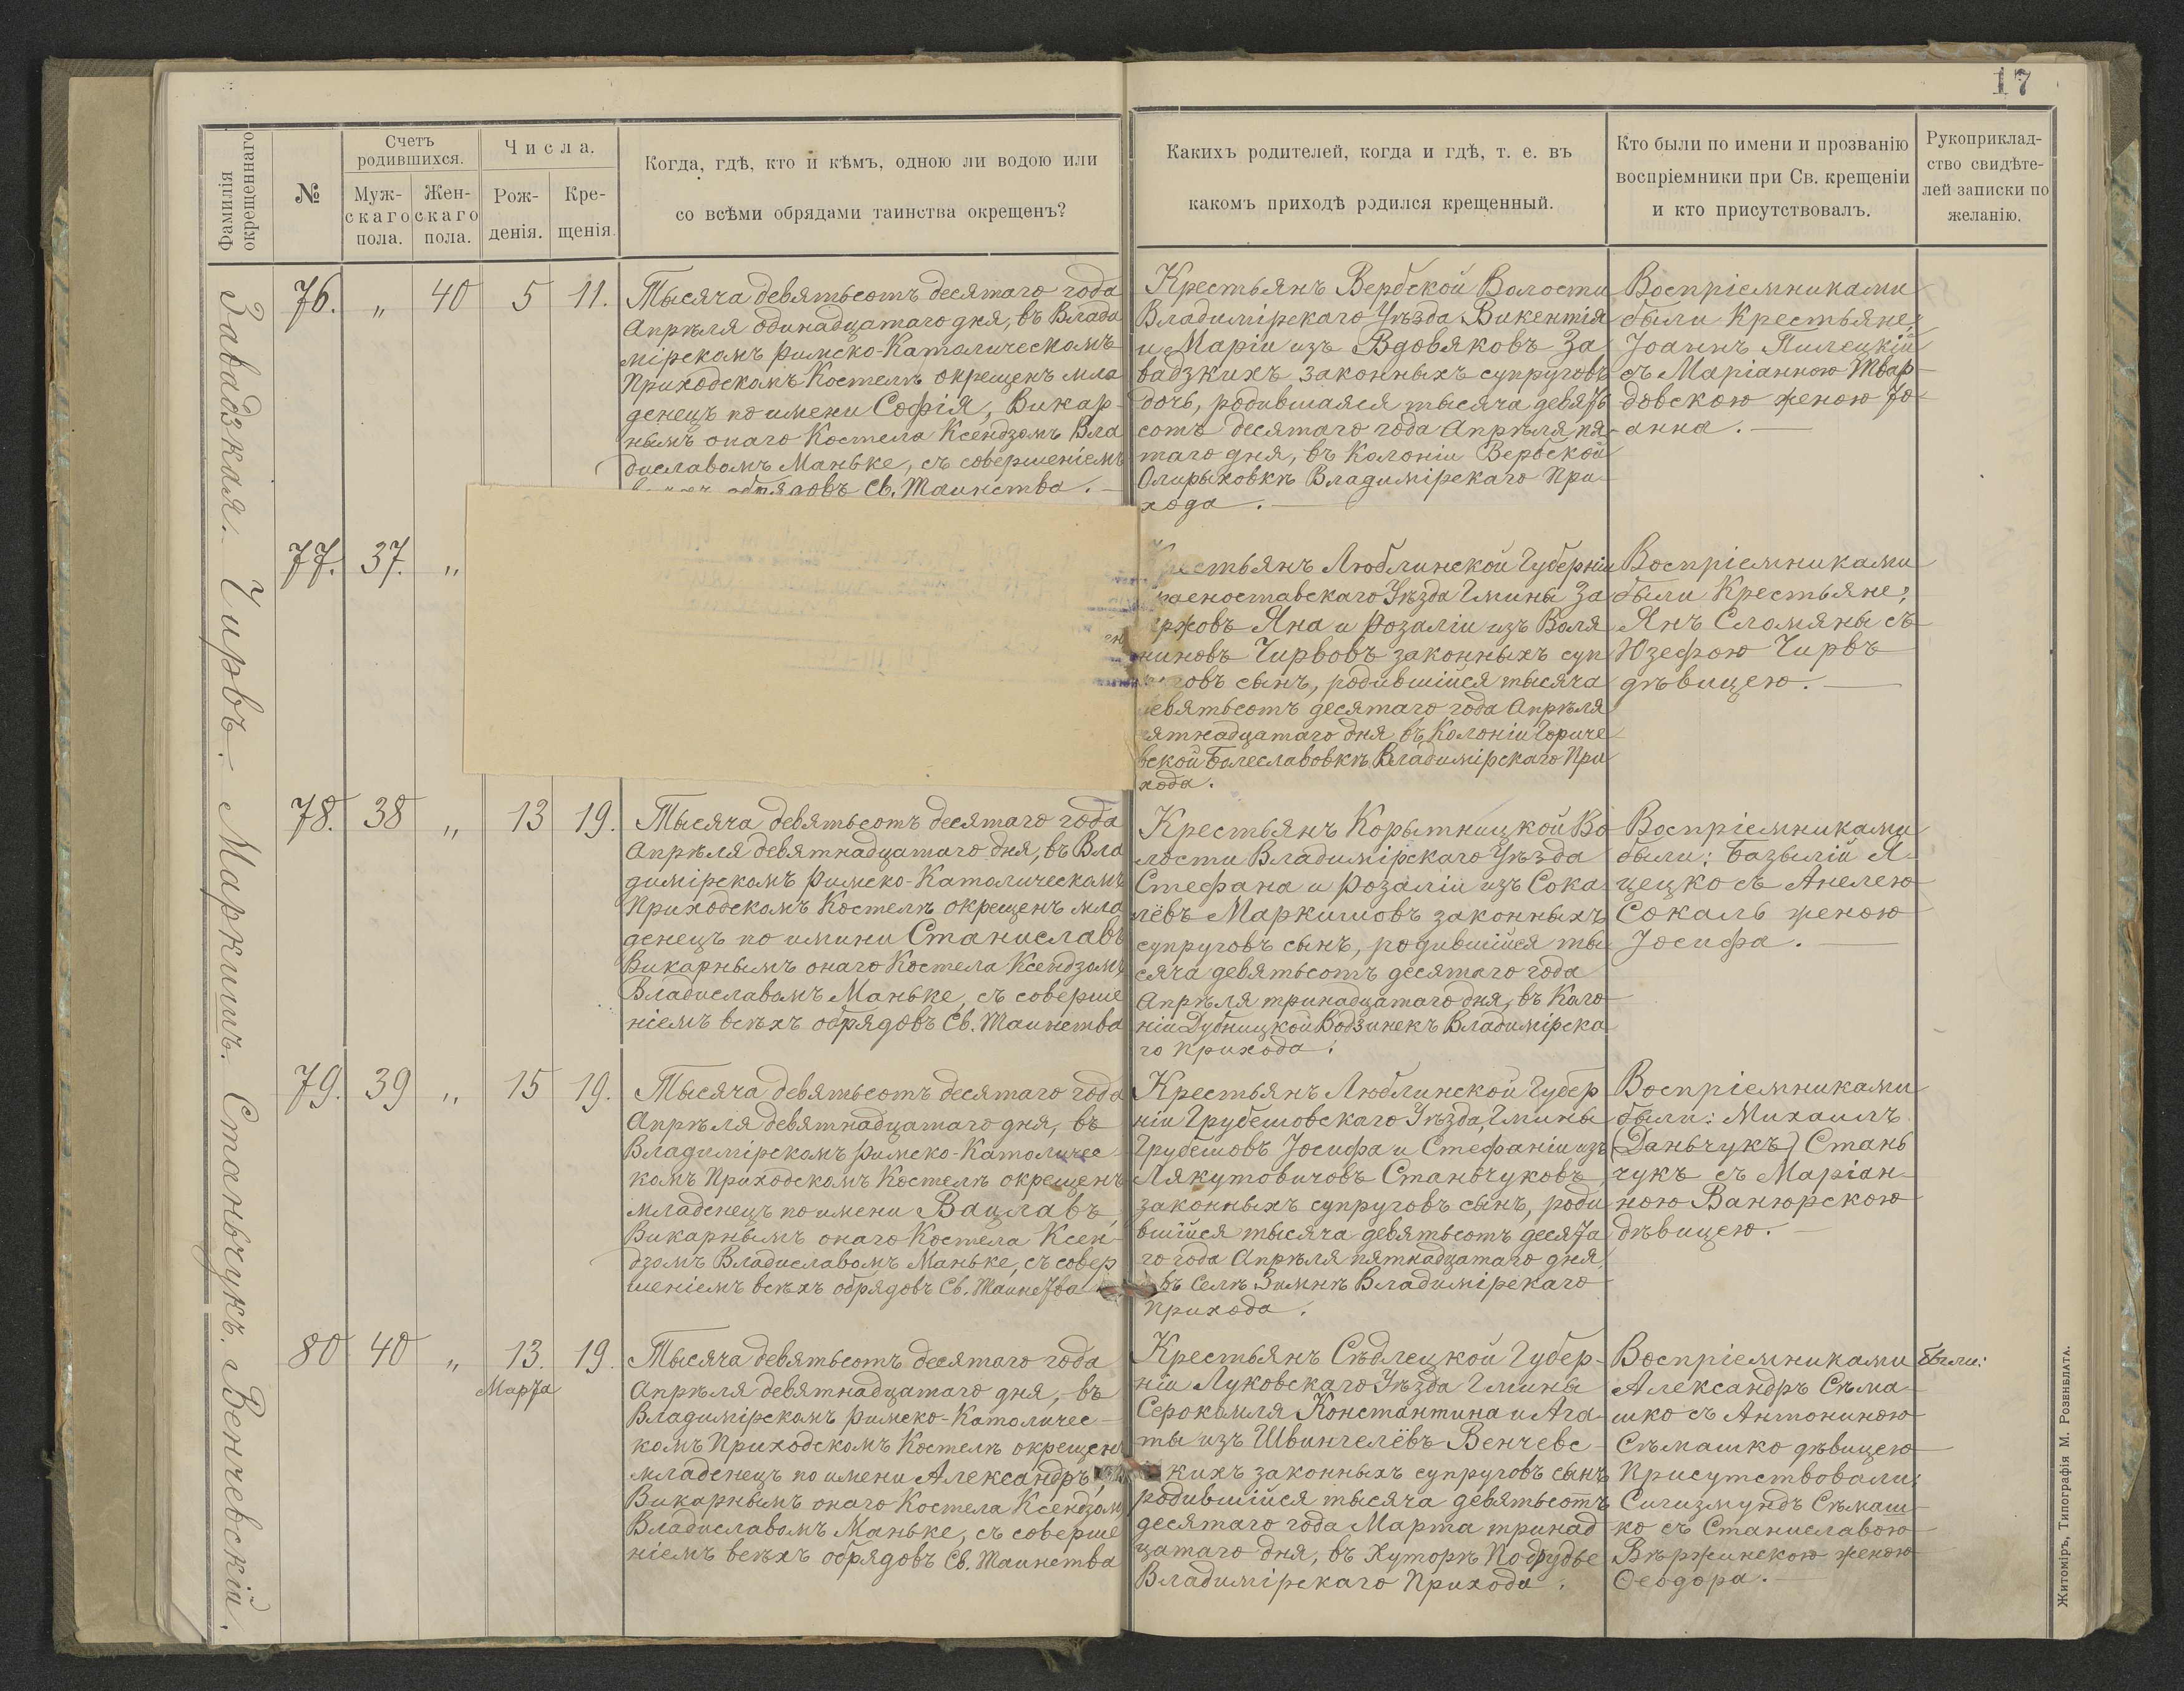 17
Фамилія окрещеннаго
№
Счетъ родившихся.
Муж-
скаго
пола.
Жен-
скаго
пола.
Числа.
Рож-
денія.
Кре-
щенія.
Когда, гдѣ, кто и кѣмъ, одною ли водою или
со всѣми обрядами таинства окрещенъ?
Какихъ родителей, когда и гдѣ, т. е. въ
какомъ приходѣ родился крещенный.
Кто были по имени и прозванію
воспріемники при Св. крещеніи
и кто присутствовалъ.
Рукоприклад-
ство свидѣте-
лей записки по
желанію.
Завадзкая.
76. „ 40 5 11.
Тысяча девятьсотъ десятаго года
Апрѣля одинадцатаго дня, въ Влади
мірскомъ Римско-Католическомъ
Приходскомъ Костелѣ окрещенъ мла
денецъ по имени Софія, Викар-
нымъ онаго Костела Ксендзомъ Вла
диславомъ Маньке, съ совершеніемъ
обрядовъ Св. Таинства.
Крестьянъ Вербской Волости
Владимірскаго Уѣзда Викентія
и Маріи изъ Вдовяковъ За
вадзкихъ законныхъ супруговъ
дочь, родившаяся тысяча девять
сотъ десятаго года Апрѣля пя-
таго дня, въ Колоніи Вербской
Олирыховкѣ Владимірскаго При-
хода.
Воспріемниками
были Крестьяне:
Іоаннъ Пилецкій
съ Маріанною Твар-
довскою женою Іо-
анна.
Чирвъ.
77. 37. „
Крестьянъ Люблинской Губерніи
Красноставскаго Уѣзда Гмины За
ржовъ Яна и Розаліи изъ Воля
ниновъ Чирвовъ законныхъ суп
руговъ сынъ, родившійся тысяча
девятьсотъ десятаго года Апрѣля
пятнадцатаго дня, въ Колоніи Гориче
вской Болеславовкѣ Владимірскаго При
хода.
Воспріемниками
были Крестьяне:
Янъ Сломяны съ
Юзефою Чирвъ
дѣвицею.
Маркишъ.
78. 38 „ 13 19.
Тысяча девятьсотъ десятаго года
Апрѣля девятнадцатаго дня, въ Вла
димірскомъ Римско-Католическомъ
Приходскомъ Костелѣ окрещенъ мла
денецъ по имини Станиславъ
Викарнымъ онаго Костела Ксендзомъ
Владиславомъ Маньке, съ соверше
ніемъ всѣхъ обрядовъ Св. Таинства
Крестьянъ Корытницкой Во
лости Владимірскаго Уѣзда
Стефана и Розаліи изъ Сока
лёвъ Маркишовъ законныхъ
супруговъ сынъ, родившійся ты
сяча девятьсотъ десятаго года
Апрѣля тринадцатаго дня, въ Коло
ніи Дубницкой Водзинекъ Владимірска
го Прихода.
Воспріемниками
были: Базылій Я-
цецко съ Анелею
Сокаль женою
Іосифа.
Станьчукъ.
79. 39 „ 15 19.
Тысяча девятьсотъ десятаго года
Апрѣля девятнадцатаго дня, въ
Владимірскомъ Римско-Католичес-
комъ Приходскомъ Костелѣ окрещенъ
младенецъ по имени Вацлавъ,
Викарнымъ онаго Костела Ксен-
дзомъ Владиславомъ Маньке, съ совер
шеніемъ всѣхъ обрядовъ Св. Таинства
Крестьянъ Люблинской Губер
ніи Грубешовскаго Уѣзда, Гмины
Грубешовъ Іосифа и Стефаніи изъ
Лякутовичовъ Станьчуковъ
законныхъ супруговъ сынъ, роди
вшійся тысяча девятьсотъ десята
го года Апрѣля пятнадцатаго дня,
въ Селѣ Зимнѣ Владимірскаго
Прихода.
Воспріемниками
были: Михаилъ
(Даньчукъ) Стань
чукъ съ Маріан-
ною Ванюрскою
дѣвицею.
Венчевскій.
80 40 „ 13. Марта 19.
Тысяча девятьсотъ десятаго года
Апрѣля девятнадцатаго дня, въ
Владимірскомъ Римско-Католичес-
комъ Приходскомъ Костелѣ окрещенъ
младенецъ по имени Александръ,
Викарнымъ онаго Костела Ксендзомъ
Владиславомъ Маньке, съ соверше
ніемъ всѣхъ обрядовъ Св. Таинства
Крестьянъ Сѣдлецкой Губер-
ніи Луковскаго Уѣзда Гмины
Серокомля Константина и Ага-
ты изъ Швингелёвъ Венчевс-
кихъ законныхъ супруговъ сынъ,
родившійся тысяча девятьсотъ
десятаго года Марта тринад
цатаго дня, въ Хуторѣ Подудье
Владимірскаго Прихода.
Воспріемниками были:
Александръ Сѣма-
шко съ Антониною
Сѣмашко дѣвицею
Присутствовали:
Сигизмундъ Сѣмаш-
ко съ Станиславою
Вѣржинскою женою
Ѳеодора.
Житоміръ, Типографія М. Розенблата.